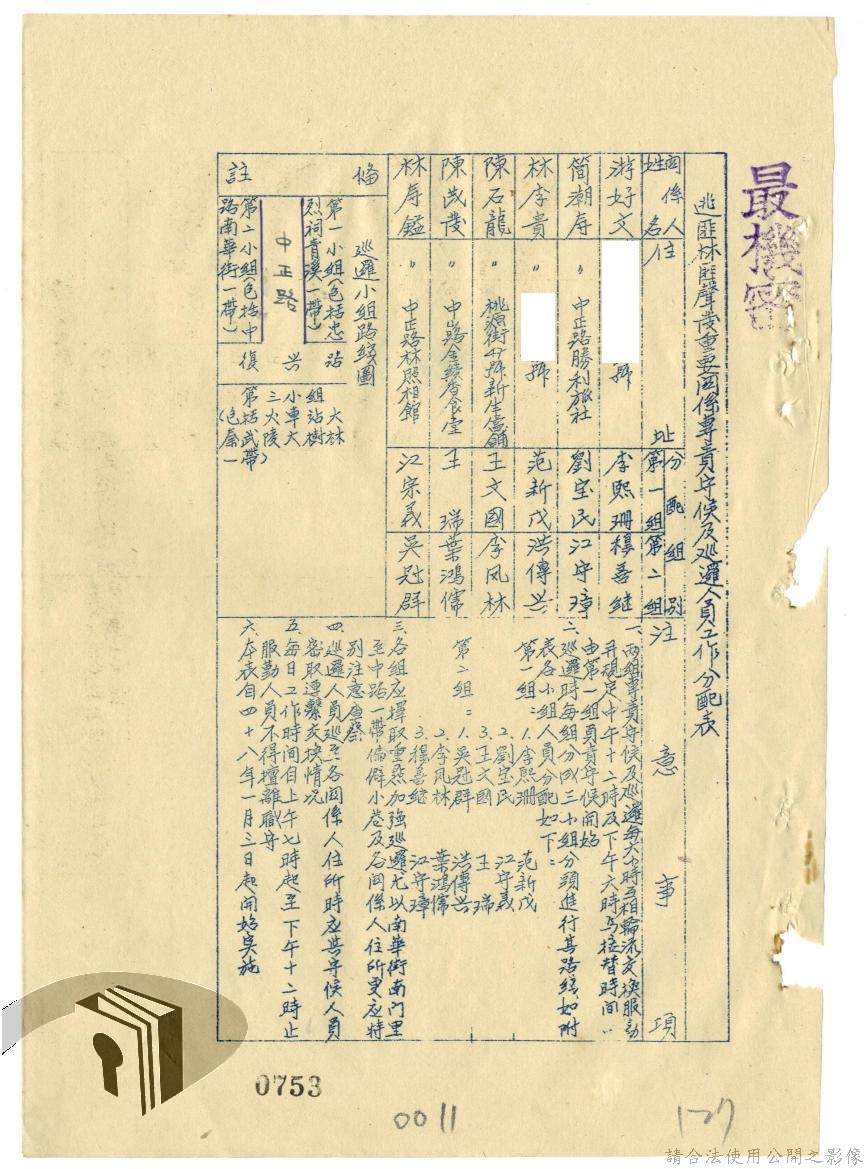 最機密
逃匪林匪聲發重要関係專責守候及巡邏人員工作分配表
関係人姓名
住址
分配組別
第一組
第二組
注意事項
游好文
號
李熙珊
穆善継
簡潮寿
〃 中正路勝利旅社
劉宝民
江守璋
林李貴
〃 號
范新茂
洪傳興
陳石龍
王文國
李凤林
陳茂發
王瑞
葉鴻儒
林寿鎰
〃 中正路林照相館
江宗義
吳冠群
一、兩組專責守候及巡邏每六小時互相輪流交換服勤
并規定中午十二時及下午六時為接替時間
由第一組員責守候開始
二、巡邏時每組分的三小組分頭進行其路綫如附
表各小組人員分配如下：
第一組：1.李熙珊 范新茂
2.劉宝民 江守義
3.王文國 王瑞
第二組：1.吳冠群 洪傳興
2.李凤林 葉鴻儒
3.穆善継 江守璋
三、各組应擇取重点加強巡邏尤以南華街南门里
至中路一帶偏僻小巷及各関係人住所更应特
別注意查察
四、巡邏人員巡至各関係人住所時应與守候人員
密取連繫交换情况
五、每日工作時间自上午七時起至下午十二時止
服勤人員不得擅離職守
六、本表自四十八年一月三日起開始实施
備註
巡邏小組路綫圖
第一小組(包括忠
烈祠青溪一帶)
中正路
第二小組(包括中
路南華街一帶)
復興
站
大林
組站樹
小車大
三火陵
第括武帶)
(包秦一
0753
0011
127
請合法使用公開之影像